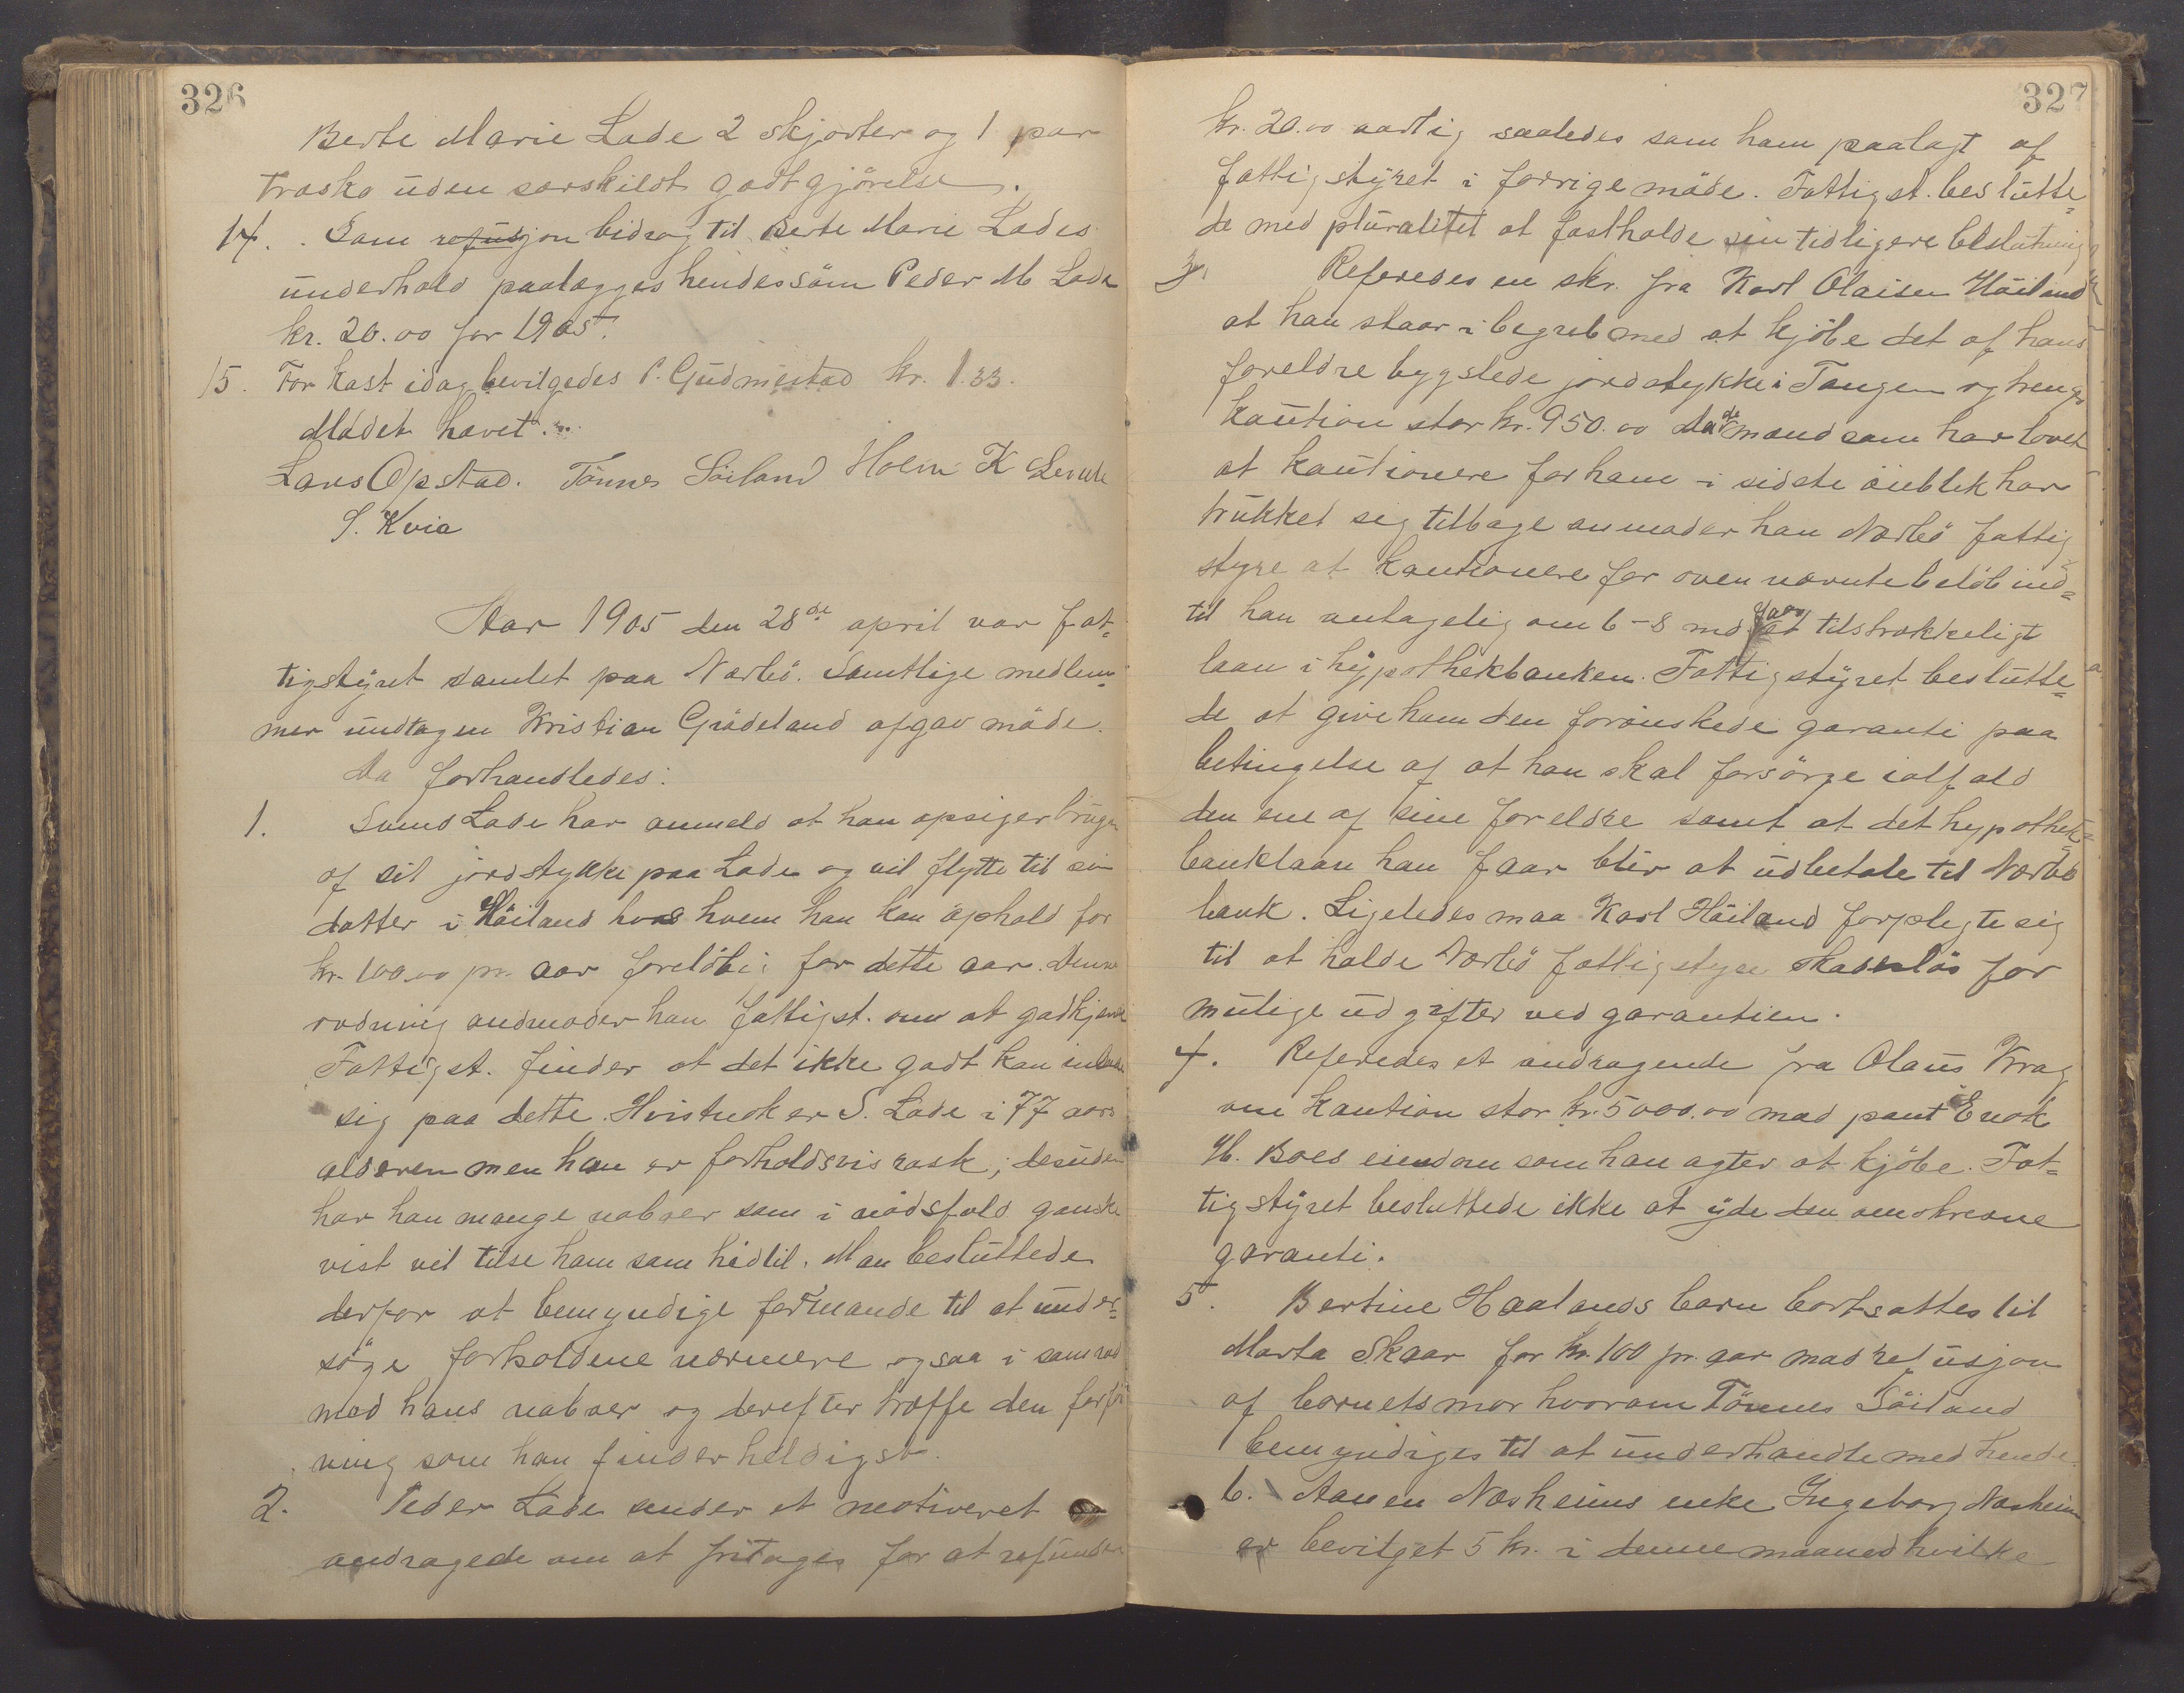 326
Berte Marie Lade 2 skjorter og 1 par
træsko uden særskildt godtgjörelse.
14. Som refusjon bidrag til Berte Marie Lades
underhold paalægges hendes söm Peder M Lade
kr. 20.00 for 1905.
15. For kast idag bevilgedes P. Gudmestad kr. 1.33.
Mödet hævet.
Lars Opstad. Tönnes Söiland Holm K
S. Kvia
Aar 1905 den 28de april var fat-
tigstyret samlet paa Nærbö. Samtlige medlem-
mer undtagen Kristian Grödeland afgav möde.
Da forhandledes:
1. Svend Lade har anmeld at han opsiger brugen
af sit jordstykke paa Lade og vil flytte til sin
datter i Höiland hvos hvem han kan ophold for
kr. 100.00 pr. aar forelöbig for dette aar. Denne
ordning andmoder han fattigst. om at godkjende
Fattigst. finder at det ikke godt kan indlade
sig paa dette. Hvistnok er S. Lade i 77 aars
alderen men han er forholdsvis rask; desuden
har han mange naboer som i nödsfald ganske
vist vil tilse ham som hidtil. Man besluttede
derfor at bemyndige formande til at under-
söge forholdene nærmere ogsaa i samraad
med hans naboer og derefter træffe den forföi
ning som han finder heldigst.
2. Peder Lade sender et motiveret
andragede om at fritages for at refundere
327
kr. 20.00 aarlig saaledes som ham paalagt af
fattigstyret i forrige möde. Fattigst. beslutte-
de med pluralitet at fastholde sin tidligere beslutning
3. Referedes en skr. fra Karl Olaisen Höiland
at han staar i begreb med at kjöbe det af hans
foreldre bygslede jordstykke i Tangen og trenger
kaution stor kr. 950.00 Da de mænd som har lovet
at kautionere for ham i sidste öieblik har
trukket sig tilbage anmoder han Nærbö fattig
styre at kautionere for oven nævnte belöb ind-
til han antagelig om 6-8 md. faar et tilstrækkeligt
laan i hypothekbanken. Fattigstyret beslutte-
de at give ham den forönskede garanti paa
betingelse af at han skal forsörge ialfald
den ene af sine foreldre samt at det hypothek-
banklaan han faar blir at udbetale til Nærbö
bank. Ligeledes maa Karl Höiland forplegte sig
til at holde Nærbö fattigstyre skadeslös for
mulige udgifter ved garantien.
4. Referedes et andragende fra Olaus Krag
om kaution stor kr. 5000.00 mod pant i Enok
H. Boes eiendom som han agter at kjöbe. Fat-
tigstyret besluttede ikke at yde den omskrevne
garanti.
5. Bertine Haalands barn bortsattes til
Marta Skaar for kr. 100 pr. aar mod refusjon
af barnets mor hvorom Tönnes Söiland
bemyndiges til at underhandle med hende.
6. Aanen Næsheims enke Ingeborg Næsheim
er bevilget 5 kr. i denne maaned hvilke